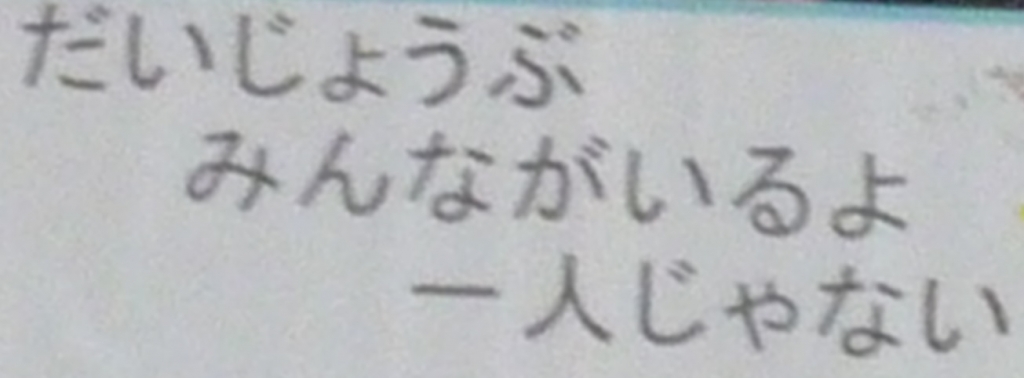 だいじょうぶ
みんながいるよ
一人じゃない